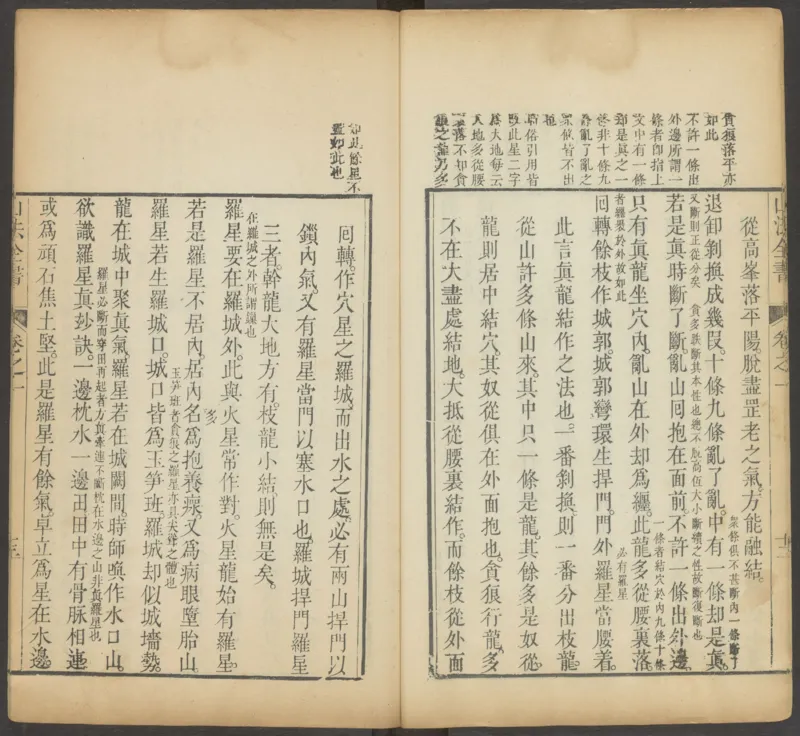 貪狼落平亦
如此
不許一條出
外邊所謂一
條者卽指上
文中有一條
却是眞之一
條非十條九
條亂了亂之
衆條皆不出
也
俗引用皆
改此星二字
爲大地每云
大地多從腰
裏落不知貪
狼之龍乃多
山法全書 卷之一
從高峯落平陽。脫盡罡老之氣。方能融結。
退卸剝換成幾叚。十條九條亂了亂。中有一條却是眞。衆條俱不甚斷內一條斷了
又斷則正從分矣 貪多跌斷其本性也總不取高低大小斷續之性故斷復斷也
若是眞時斷了斷。亂山囘抱在面前。不許一條出外邊。一條者結穴於內九條十條
只有眞龍坐穴內。亂山在外却爲纏。此龍多從腰裏落。
者纏裹於外故如此
囘轉餘枝作城郭。城郭彎環生捍門。門外羅星當腰着。必有羅星
此言眞龍結作之法也。一番剝換。則一番分出枝龍。
從山許多條山來。其中只一條是龍。其餘多是奴從。
龍則居中結穴。其奴從俱在外面抱也。貪狼行龍。多
不在大盡處結地。大抵從腰裏結作。而餘枝從外面
如此餘星不
盡如此也
囘轉。作穴星之羅城。而出水之處。必有兩山捍門以
鎖內氣。又有羅星當門以塞水口也。羅城捍門羅星
三者。幹龍大地方有。枝龍小結。則無是矣。
在羅城之外所謂鎮也
羅星要在羅城外。此與火星常作對。火星龍始有羅星。
多
若是羅星不居內。居內名爲抱養瘝。又爲病眼墮胎山。
玉笋班者貪狼之羅星亦具尖聳之體也
羅星若生羅城口。城口皆爲玉笋班。羅城却似城墻勢。
龍在城中聚眞氣。羅星若在城闕間。時師喚作水口山。
羅星必斷而穿田再起者方眞牽連不斷枕在水邊之山非眞羅星也
欲識羅星眞妙訣。一邊枕水一邊田。田中有骨脉相連。
或爲頑石焦土堅。此是羅星有餘氣。卓立爲星在水邊。
山法全書 卷之一